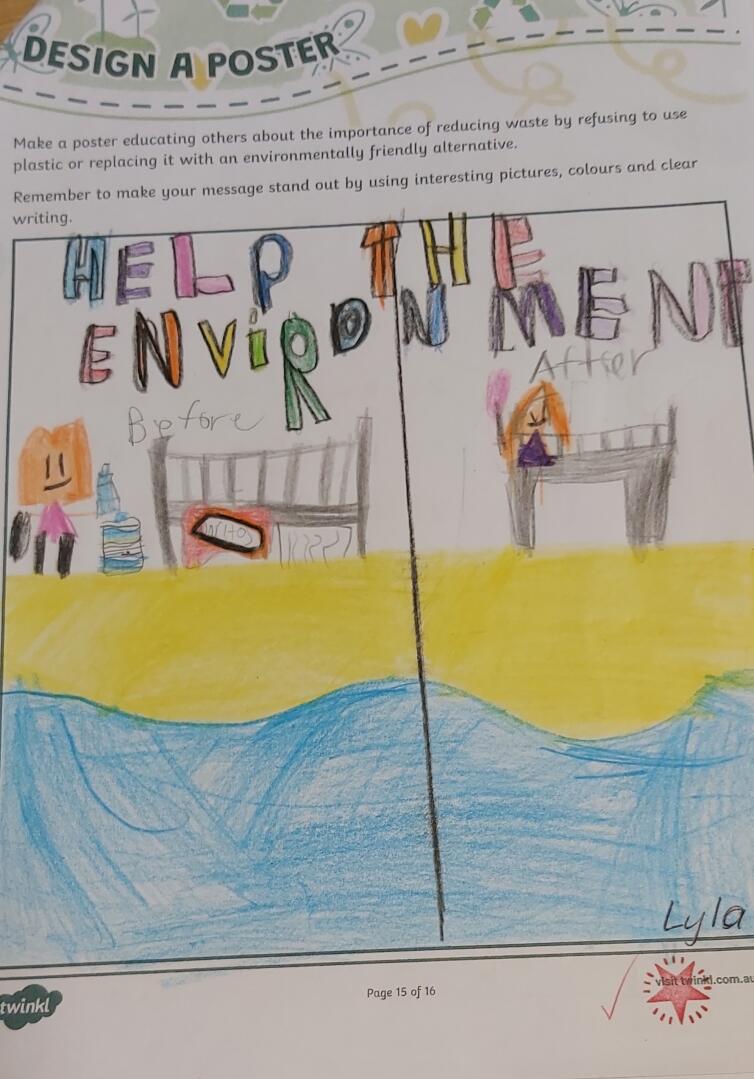 DESIGN A POSTER
Make a poster educating others about the importance of reducing waste by refusing to use
plastic or replacing it with an environmentally friendly alternative.
Remember to make your message stand out by using interesting pictures, colours and clear
writing.
HELP THE
ENVIRONMENT
Before
After
Lyla
twinkl
Page 15 of 16
visit twinkl.com.au